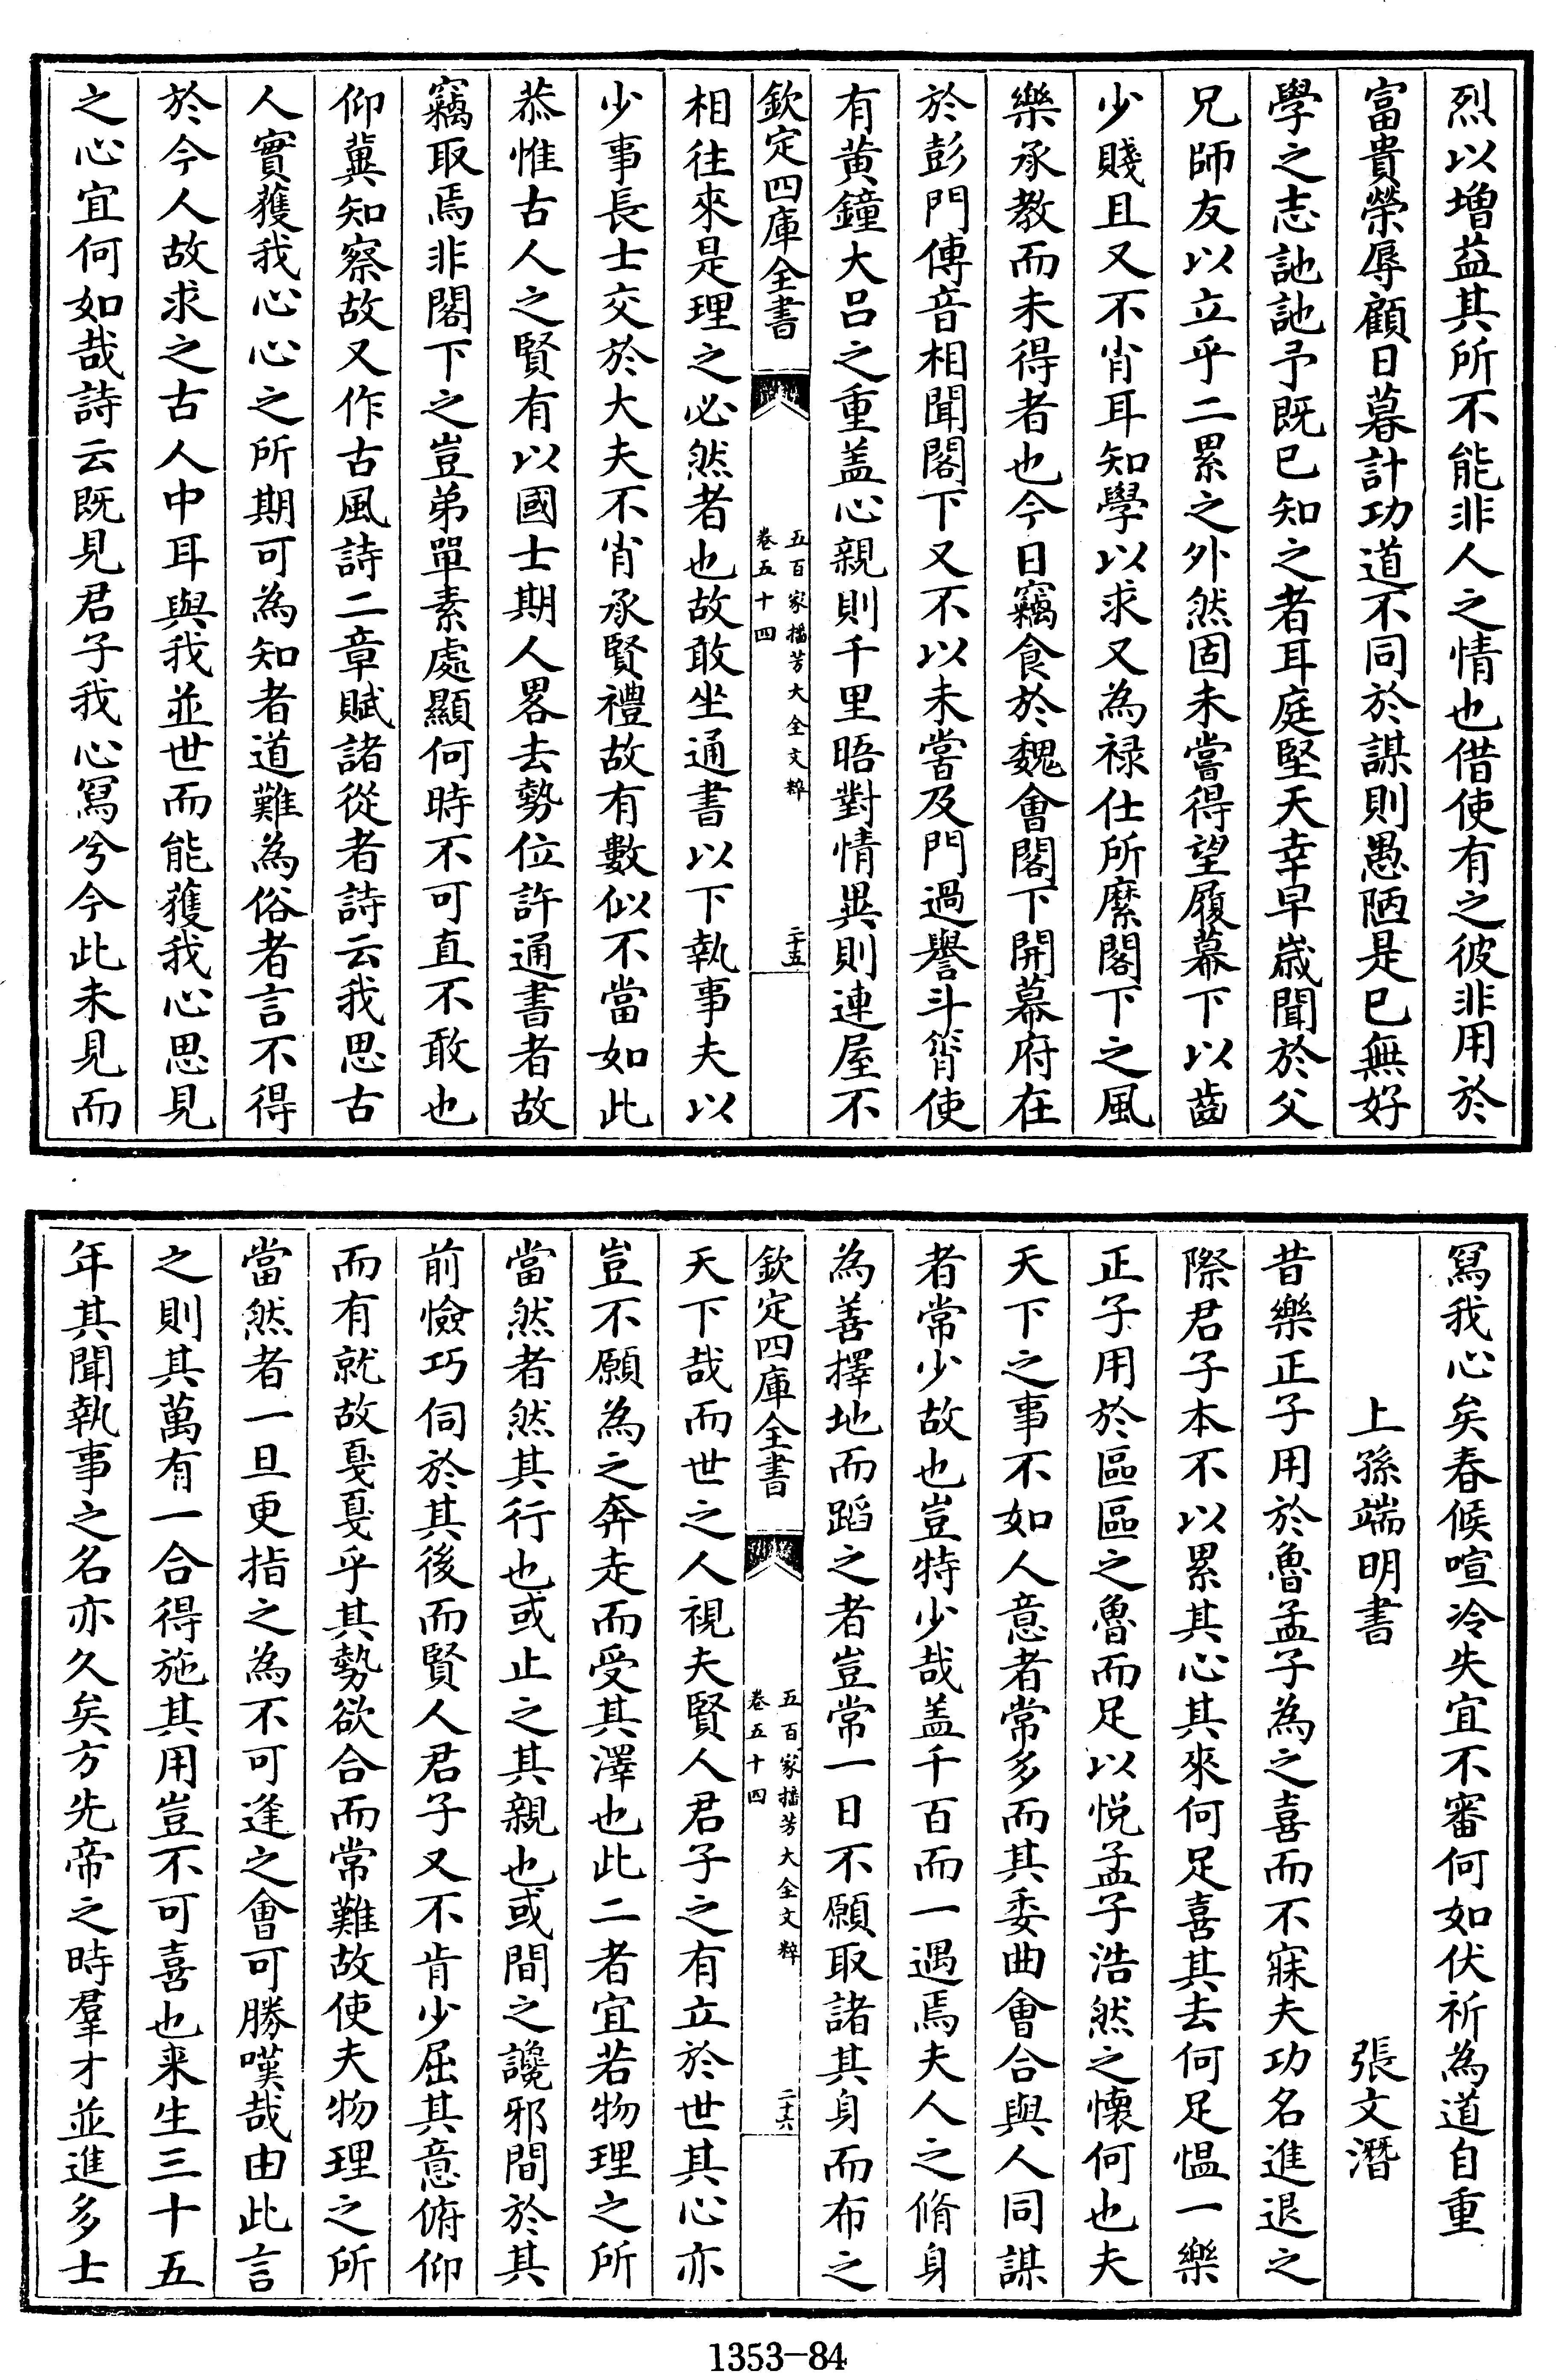 烈以增益其所不能非人之情也借使有之彼非用於
富貴榮辱顧日暮計功道不同於謀則愚陋是已無好
學之志訑訑予既已知之者耳庭堅天幸早歳聞於父
兄師友以立乎二累之外然固未嘗得望履幕下以齒
少賤且又不肖耳知學以求又為禄仕所縻閣下之風
樂承教而未得者也今日竊食於魏會閣下開幕府在
於彭門傳音相聞閣下又不以未嘗及門過譽斗筲使
有黄鐘大呂之重盖心親則千里晤對情異則連屋不
欽定四庫全書
五百家播芳大全文粹
卷五十四
二十五
相往來是理之必然者也故敢坐通書以下執事夫以
少事長士交於大夫不肖承賢禮故有數似不當如此
恭惟古人之賢有以國士期人畧去勢位許通書者故
竊取焉非閣下之豈弟單素處顯何時不可直不敢也
仰冀知察故又作古風詩二章賦諸從者詩云我思古
人實獲我心心之所期可為知者道難為俗者言不得
於今人故求之古人中耳與我並世而能獲我心思見
之心宜何如哉詩云既見君子我心寫兮今此未見而
寫我心矣春候喧冷失宜不審何如伏祈為道自重
上孫端明書 張文潛
昔樂正子用於魯孟子為之喜而不寐夫功名進退之
際君子本不以累其心其來何足喜其去何足愠一樂
正子用於區區之魯而足以悦孟子浩然之懷何也夫
天下之事不如人意者常多而其委曲會合與人同謀
者常少故也豈特少哉盖千百而一遇焉夫人之脩身
為善擇地而蹈之者豈常一日不願取諸其身而布之
欽定四庫全書
五百家播芳大全文粹
卷五十四
二十六
天下哉而世之人視夫賢人君子之有立於世其心亦
豈不願為之奔走而受其澤也此二者宜若物理之所
當然者然其行也或止之其親也或間之讒邪間於其
前憸巧伺於其後而賢人君子又不肯少屈其意俯仰
而有就故戛戛乎其勢欲合而常難故使夫物理之所
當然者一旦更指之為不可逢之會可勝嘆哉由此言
之則其萬有一合得施其用豈不可喜也耒生三十五
年其聞執事之名亦久矣方先帝之時羣才並進多士
1353-84